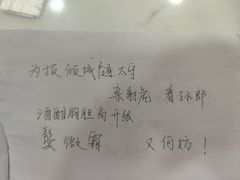 为报倾城随太守
亲射虎 看孙郎
酒酣胸胆尚开张
鬓微霜 又何妨！